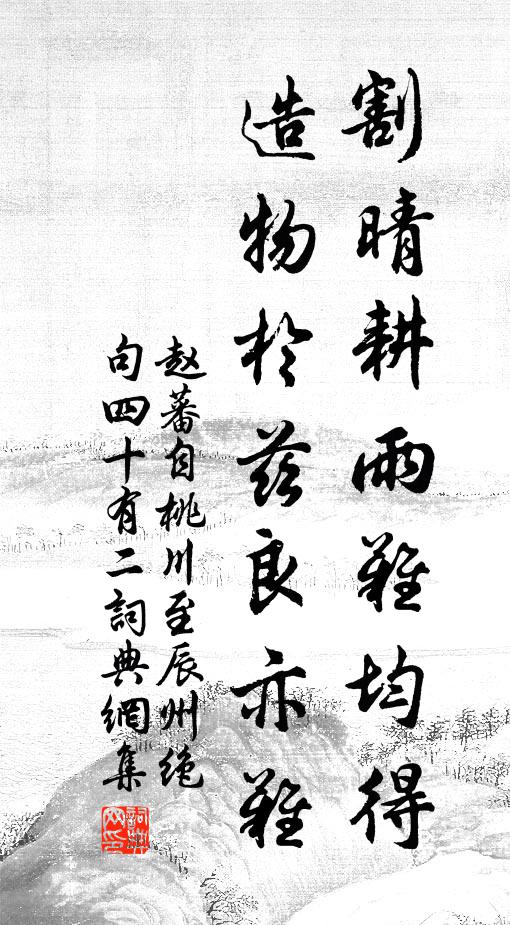 割晴耕雨難均得
造物於茲良亦難
趙蕃自桃川至辰州絶
句四十有二詞典網集